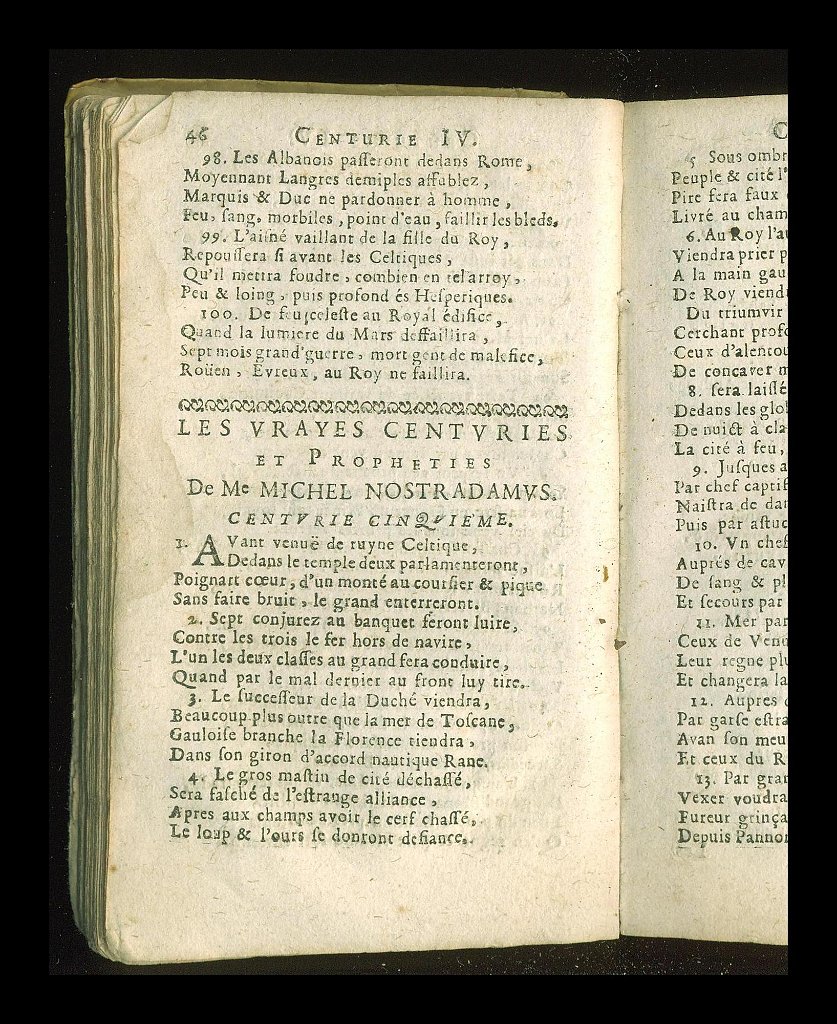 46 CENTURIE IV.
98. Les Albanois paſſeront dedans Rome,
Moyennant Langres demiples affublez,
Marquis & Duc ne pardonner à homme,
Feu, ſang, morbiles, point d'eau, faillir les bleds.
99. L'aiſné vaillant de la fille du Roy,
Repouſſera ſi avant les Celtiques,
Qu'il mettra foudre, combien en tel arroy,
Peu & loing, puis profond és Heſperiques.
100. De feu celeſte au Royal édifice,
Quand la lumiere du Mars deffaillira,
Sept mois grand'guerre, mort gent de malefice,
Roüen, Evreux, au Roy ne faillira.
LES VRAYES CENTVRIES
ET PROPHETIES
De Me MICHEL NOSTRADAMVS.
CENTVRIE CINQVIEME.
1. AVant venuë de ruyne Celtique,
Dedans le temple deux parlamenteront,
Poignart cœur, d'un monté au courſier & pique
Sans faire bruit, le grand enterreront.
2. Sept conjurez au banquet feront luire,
Contre les trois le fer hors de navire,
L'un les deux claſſes au grand fera conduire,
Quand par le mal dernier au front luy tire.
3. Le ſucceſſeur de la Duché viendra,
Beaucoup plus outre que la mer de Toſcane,
Gauloiſe branche la Florence tiendra,
Dans ſon giron d'accord nautique Rane.
4. Le gros maſtin de cité déchaſſé,
Sera faſché de l'eſtrange alliance,
Apres aux champs avoir le cerf chaſſé,
Le loup & l'ours ſe donront defiance.
C
5 Sous ombr
Peuple & cité l'
Pire fera faux
Livré au cham
6. Au Roy l'au
Viendra prier p
A la main gau
De Roy viend
Du triumvir
Cerchant profo
Ceux d'alentou
De concaver m
8. ſera laiſſé
Dedans les glo
De nuict à cla
La cité à feu,
9. Juſques a
Par chef captif
Naiſtra de da
Puis par aſtuc
10. Vn chef
Auprés de cav
De ſang & pl
Et ſecours par
11. Mer par
Ceux de Venu
Leur regne plu
Et changera la
12. Aupres
Par garſe eſtra
Avan ſon meu
Et ceux du R
13. Par gran
Vexer voudra
Fureur grinça
Depuis Pannon